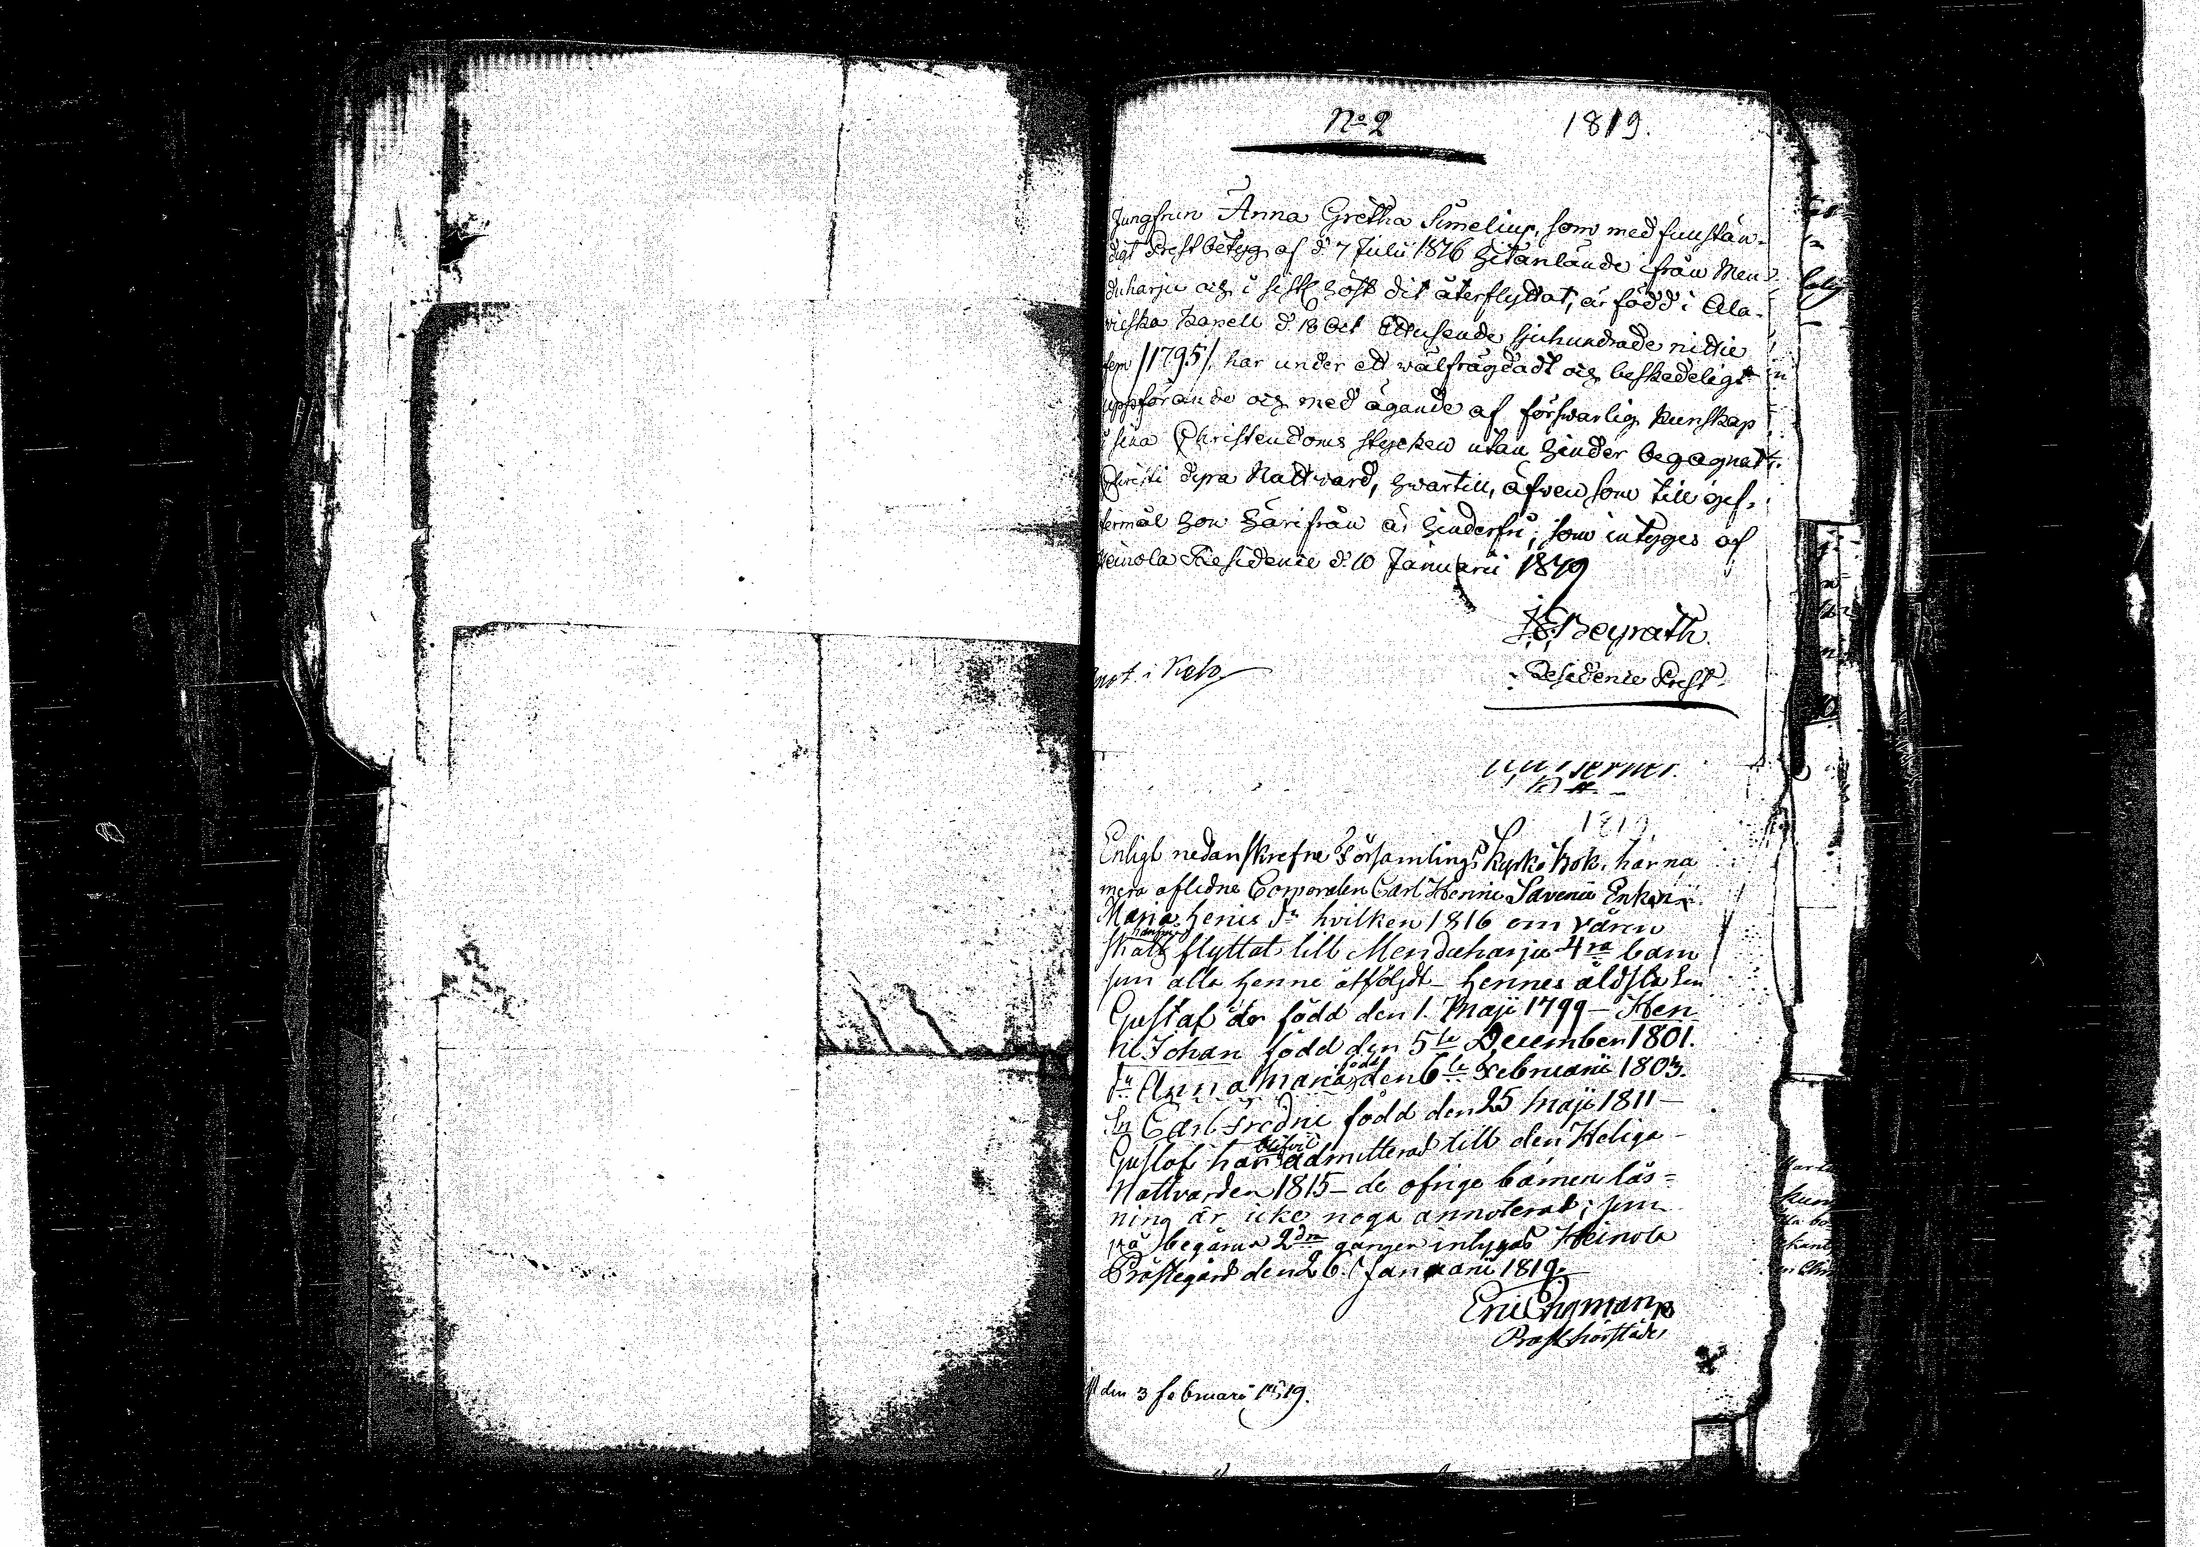 No 2 1819.
Jungfrun Anna Gretha Simelius, som med fullstän-
digt Prestbetyg af d. 7 Julii 1816 hitanlände ifrån Men-
duharju och i sistl. höst dit återflyttat, är född i Ala-
vieska Kapell d. 18 Oct Ettusende sjuhundrade nittie
fem /1795/, har under ett wälfrägdadt och beskedeligt
uppförande och med ägande af förswarlig kunskap
i sina Christendoms stycken utan hinder begagnat
Christi dyra Nattward, hwartill, äfwen som till ägt-
ermål hon härifrån är hinderfri, som intyges af
Heinola Residence d. 10 Januarii 1819
Beyrath.
Residence Prest.
1819.
Enligt nedanskrefne Församlings Kyrkobok, har na
mera aflidne Corporalen Carl Henric Savenii Enka
Maria Henricsdr hvilken 1816 om våren
skall härifrån flyttat till Menduharju 4ra barn
som alla henne åtföljdt – hennes äldsta Son
Gustaf är född den 1. Maji 1799 – Hen
ric Johan född den 5te December 1801.
dr Anna Maria född den 6te Februarii 1803.
Sn Carl Fredric född den 25 Maji 1811 –
Gustaf har blifvit admitterad till den Heliga
Nattvarden 1815 – de öfrige barnens läs=
ning är icke noga annoterad; som
på begäran 2dra gången intygas Heinola
Prästegård den 26. Januarii 1819.
Eric Engman
den 3 februari 1819.